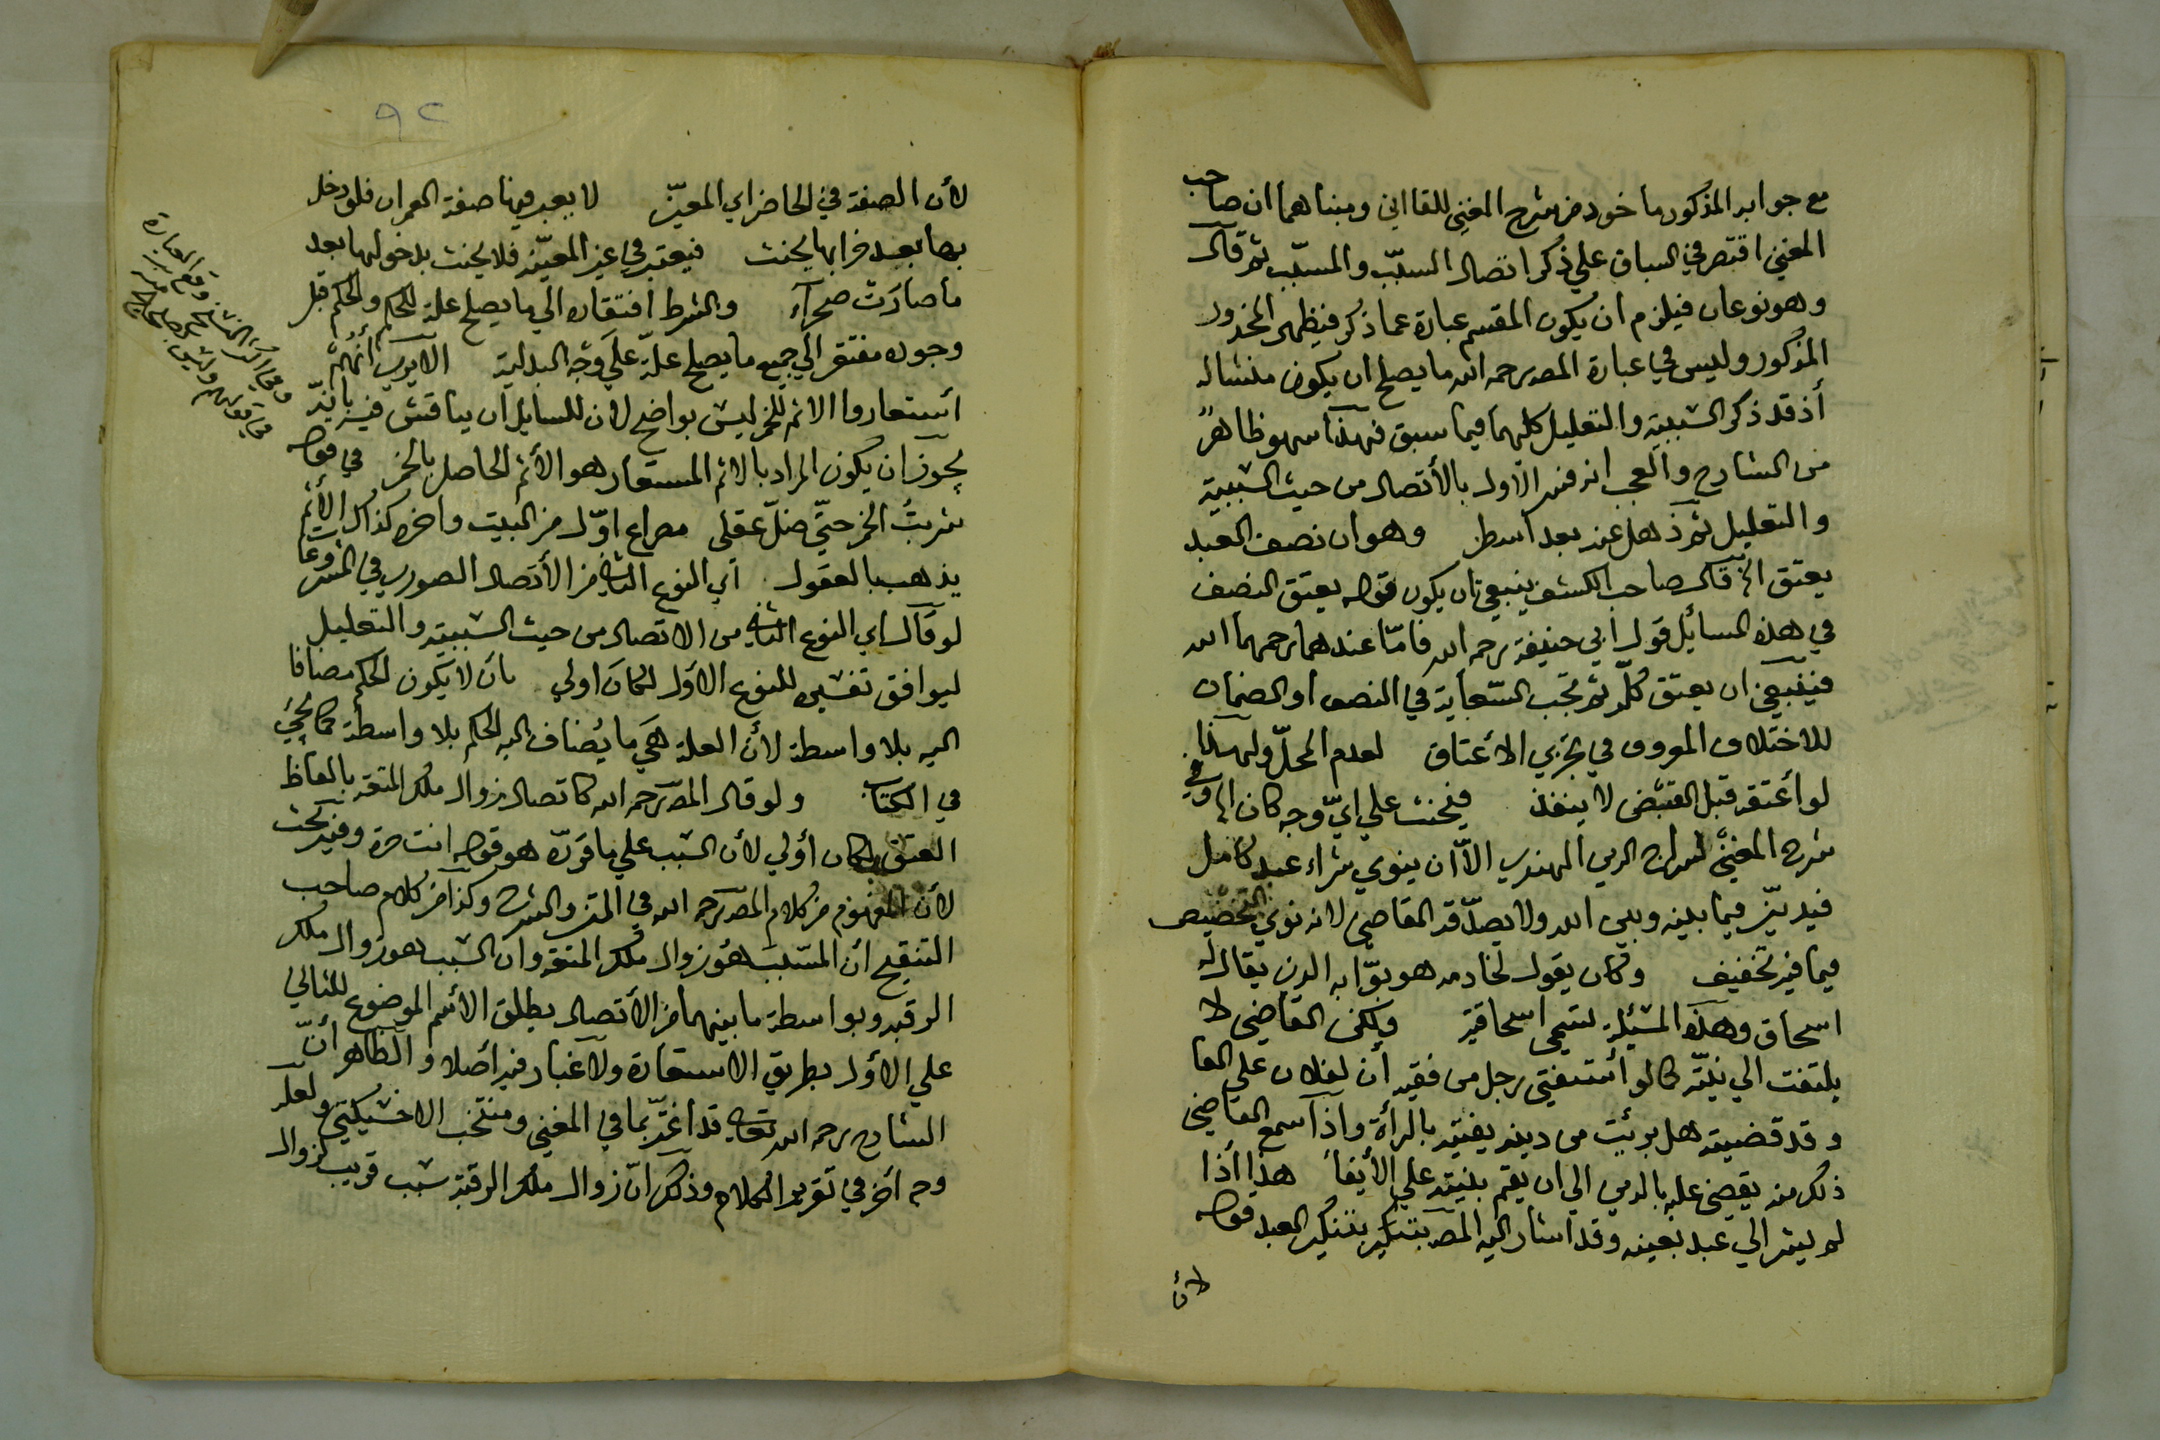 مع جوابه المذكور ماخوذ من شرح المغني للقاآني ومبناهما ان صاحب
المغني اقتصر في السباق علي ذكر اتصال السبّب والمسبّب ثم قال
وهو نوعان فيلزم ان يكون المقسم عبارة عما ذكر فيظهر المحذور
المذكور وليس في عبارة المصه رحمه الله ما يصلح ان يكون منشا له
أذ قد ذكر السببيّة والتعليل كليهما فيما سبق فهذا سهو ظاهرٌ
من الشارح والعجب انه فسر الاول بالأتصال من حيث السببيّة
والتعليل ثم ذهل عنه بعد اسطر وهو ان نصف العبد
يعتق الخ قال صاحب الكشف ينبغي ان يكون قوله يعتق النصف
في هذه المسائل قول أبي حنيفة رحمه الله فامّا عندهما رحمهما الله
فينبغي ان يعتق كلّه ثم تجب السّعاية في النصف او الضمان
للاختلاف المعروف في تجزي الأعتاق لعدم المحلّ ولهذا
لو أعتقه قبل القبض لا ينفذ فيحنث علي ايّ وجه كان الخ وفي
شرح المغني لسراج الدين الهندي الاّ ان ينوي شراء عبد كامل
فيديّن فيما بينه وبين الله ولا يصدّقه القاضي لانه نوي التخصيص
فيما فيه تخفيف وكان يقول لخادمه هو بوّابه الذي يقال له
اسحاق وهذه المسئلة تسمي اسحاقية ولكن القاضي لا
يلتفت الي نيّته كما لو أستفتي رجل من فقيه أن لفلان علي الفا
وقد قضيته هل برئت من دينه يفتيه بالبرأة واذا سمع القاضي
ذلك منه يقضي عليه بالدين الي ان يقيم بينته علي الأيفاً هذا أذا
لم يشر الي عبد بعينه وقد اشار اليه المصه بتنكير العبد قوله
لأن
٩٢
لأن الصفة في الحاضر اي المعيّن لا يعتبر فيها صفة العمران فلو دخل
بها بعد خرابها يحنث فيعتبر في غير المعيّنه فلا يحنث بدخولها بعد
ما صارت صحرآء والشرط افتقاره الي ما يصلح علة للحكم والحكم قبل
وجوده مفتقر الي جميع ما يصلح علّة علي وجه البدلية الا يري أنهم
أستعاروا الاثم للخمر ليس بواضح لان للسايل ان يناقش فيه بانه
يجوز ان يكون المراد بالاثم المستعار هو الأثم الحاصل بالخمر في قوله
شربتُ الخمر حتّي ضلّ عقلي مصراع اوّل من البيت واخره كذاك الأثم
يذهب بالعقول أي النوع الثاني من الأتصال الصوري في المشروعات
لو قال اي النوع الثاني من الاتصال من حيث السببيّة والتعليل
ليوافق تفسيره للنوع الاول لكان اولي بان لا يكون الحكم مضافا
اليه بلا واسطة لأن العلة هي ما يُضاف اليه الحكم بلا واسطة كما يجيُ
في الكتاب ولو قال المصه رحمه الله كاتصال زوال ملك المتعة بالفاظ
العتق لكان أولي لأن السبب علي ما قرّره هو قوله انت حرة وفيه بحث
لأن المفهوم من كلام المصه رحمه الله في المتن والشرح وكذا من كلام صاحب
التنقيح ان المسبّب هو زوال ملك المتعة وان السبب هو زوال ملك
الرقبه وبواسطة ما بينهما من الأتصال يطلق الأسم الموضوع للثاني
علي الأول بطريق الاستعارة ولا غبار فيه أصلا والظاهر أنّ
الشارح رحمه الله تعالي قد اغترّ بما في المغني ومنتخب الاخسيكتي ولعل
وجه أخر في تقرير الكلام وذلك انّ زوال ملك الرقبة سبب قريب لزوال
وفي اكثر النسخ وقع العبارة